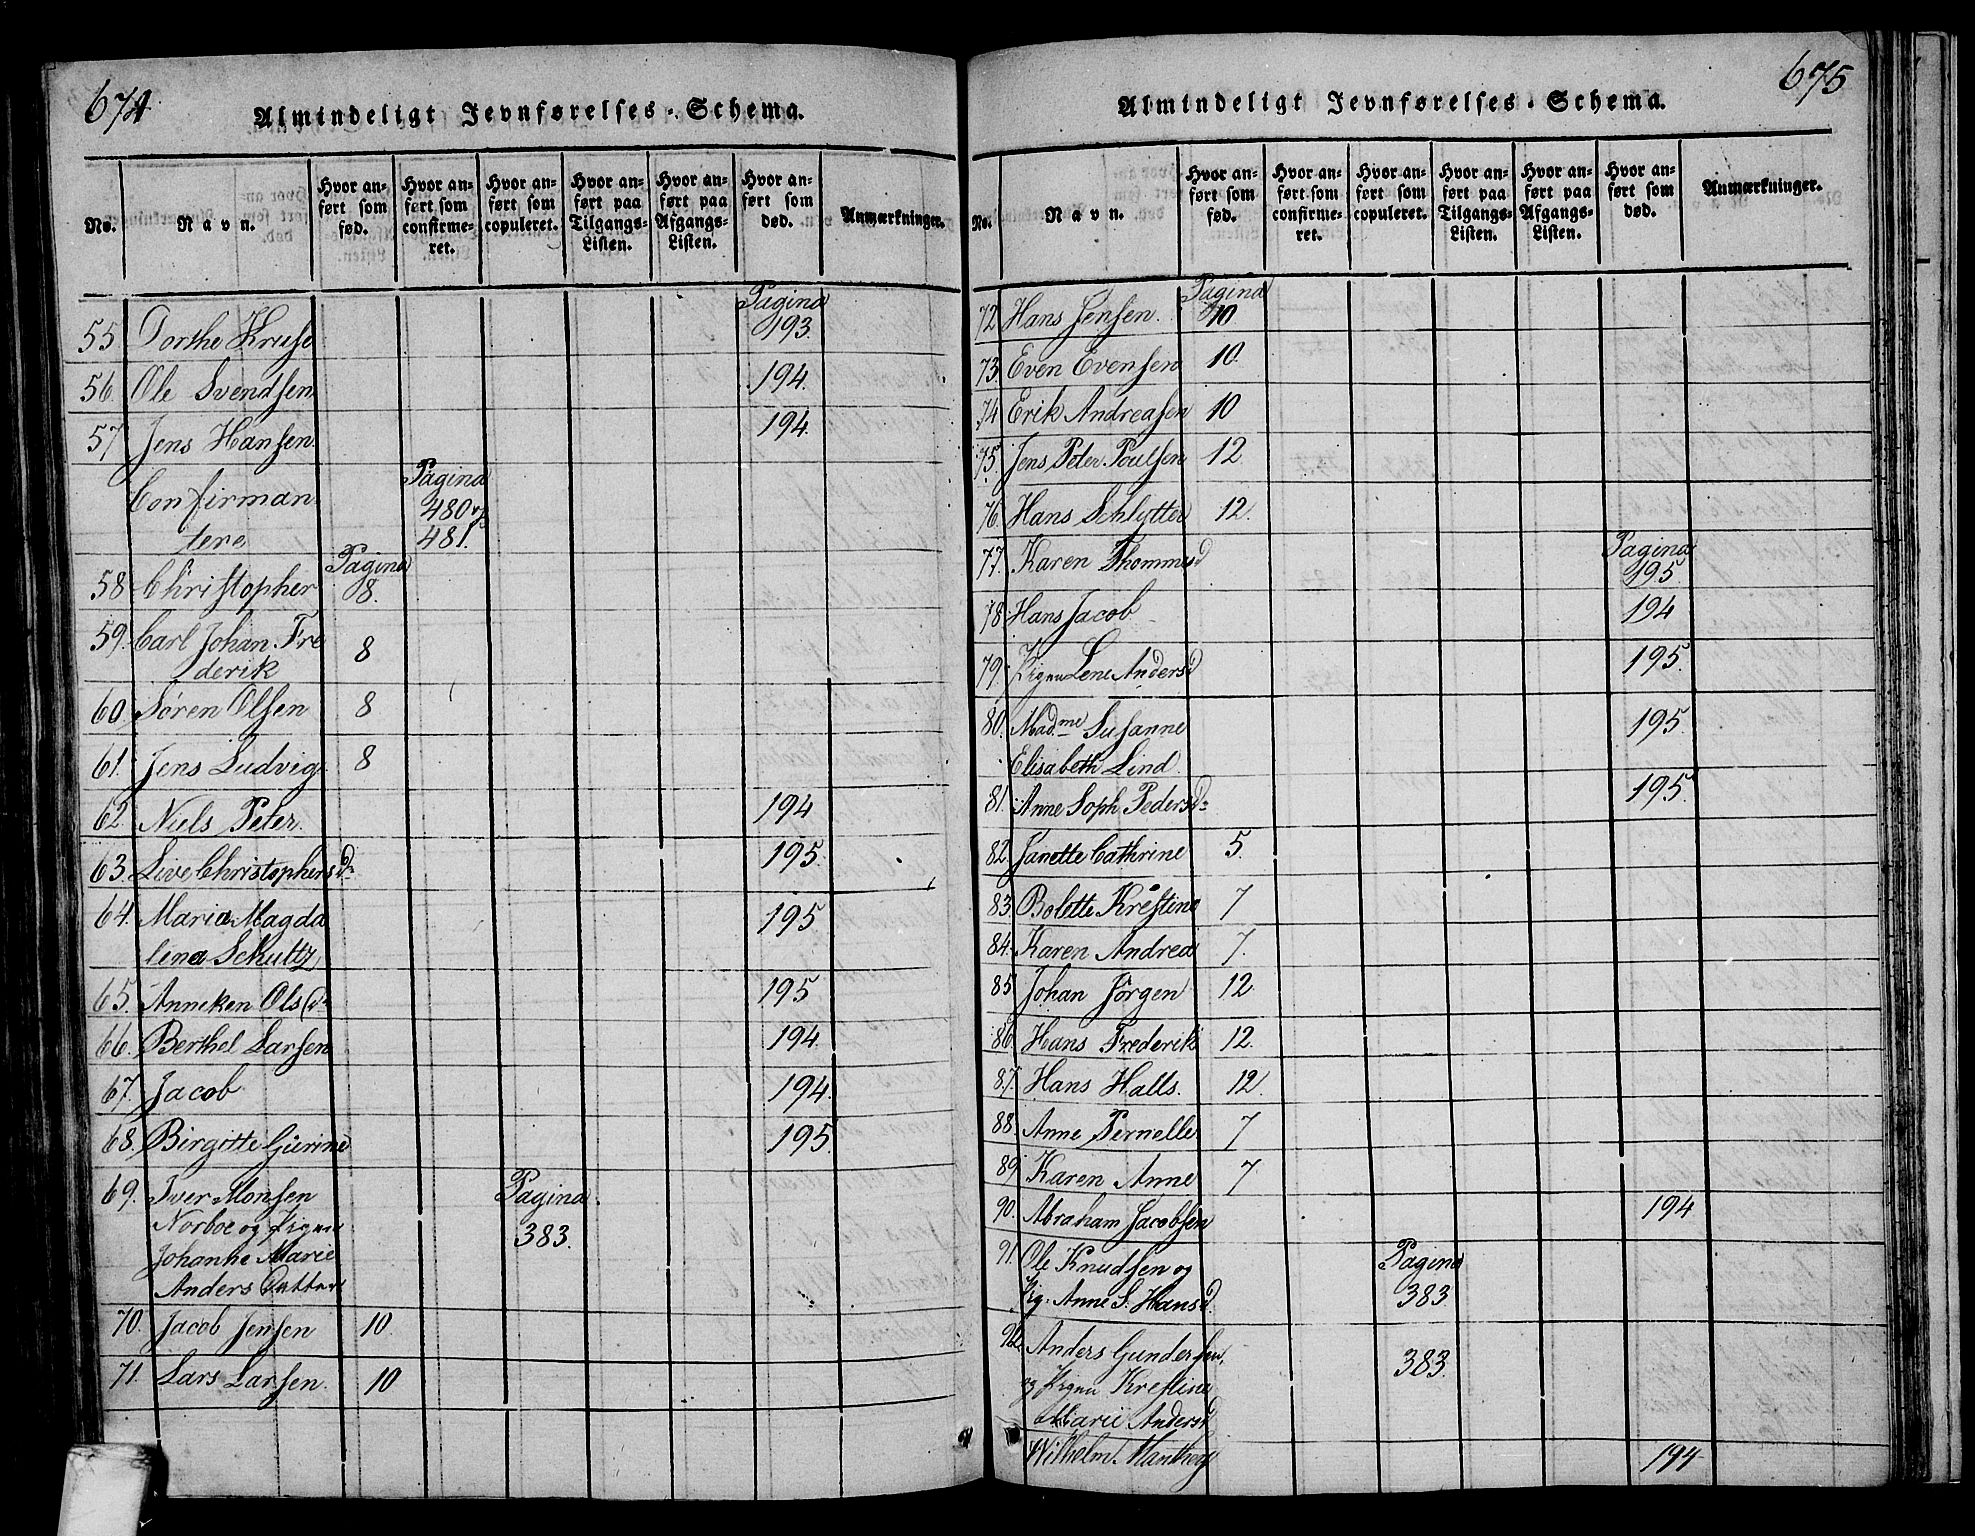 674
Almindeligt Jevnførelses-Schema.
No. Navn. Hvor anført som fød. Hvor anført som confirmeret. Hvor anført som copuleret. Hvor anført paa Tilgangs-Listen. Hvor anført paa Afgangs-Listen. Hvor anført som død. Anmærkninger.
Pagina
55 Dorthe Kruse 193.
56. Ole Svendsen 194.
57 Jens Hansen. 194.
Pagina
Confirman 480 og
tere 481.
Pagina
58 Christopher 8.
59. Carl Johan Fre 8
derik
60. Søren Olsen 8
61. Jens Ludvig 8
62. Niels Peter. 194
63. Live Christophersd. 195.
64. Maria Magda 195
lena Schultz
65. Anneken Olsd. 195
66. Berthel Larsen 194.
67. Jacob 194.
68. Birgitte Gurine 195.
69. Iver Monsen Pagina.
Norboe og Pigen 383.
Johanne Marie
Anders Datter
70. Jacob Jensen 10.
71. Lars Larsen. 10
675
Almindeligt Jevnførelses-Schema.
No. Navn. Hvor anført som fød. Hvor anført som confirmeret. Hvor anført som copuleret. Hvor anført paa Tilgangs-Listen. Hvor anført paa Afgangs-Listen. Hvor anført som død. Anmærkninger.
Pagina
72 Hans Jensen. 10
73. Even Evensen 10.
74 Erik Andreasen 10
75. Jens Peter Poulsen 12
76. Hans Schlytter 12.
Pagina
77. Karen Thommesd 195
78. Hans Jacob 194
79. Pigen Lene Andersd 195.
80. Mad.me Susanne 195.
Elisabeth Lind.
81. Anne Soph. Pedersd. 195.
82. Janette Cathrine 5.
83. Bolette Kirstine 7
84. Karen Andrea 7.
85 Johan Jörgen 12.
86. Hans Frederik 12.
87. Hans Halls. 12.
88. Anne Pernelle 7
89. Karen Anne 7
90. Abraham Jacobsen 194
91. Ole Knudsen og Pagina
Pig. Anne S. Hansd. 383.
92. Anders Gundersen, 383.
og Pigen Krestine
Marie Andersd
Wilhelm 194